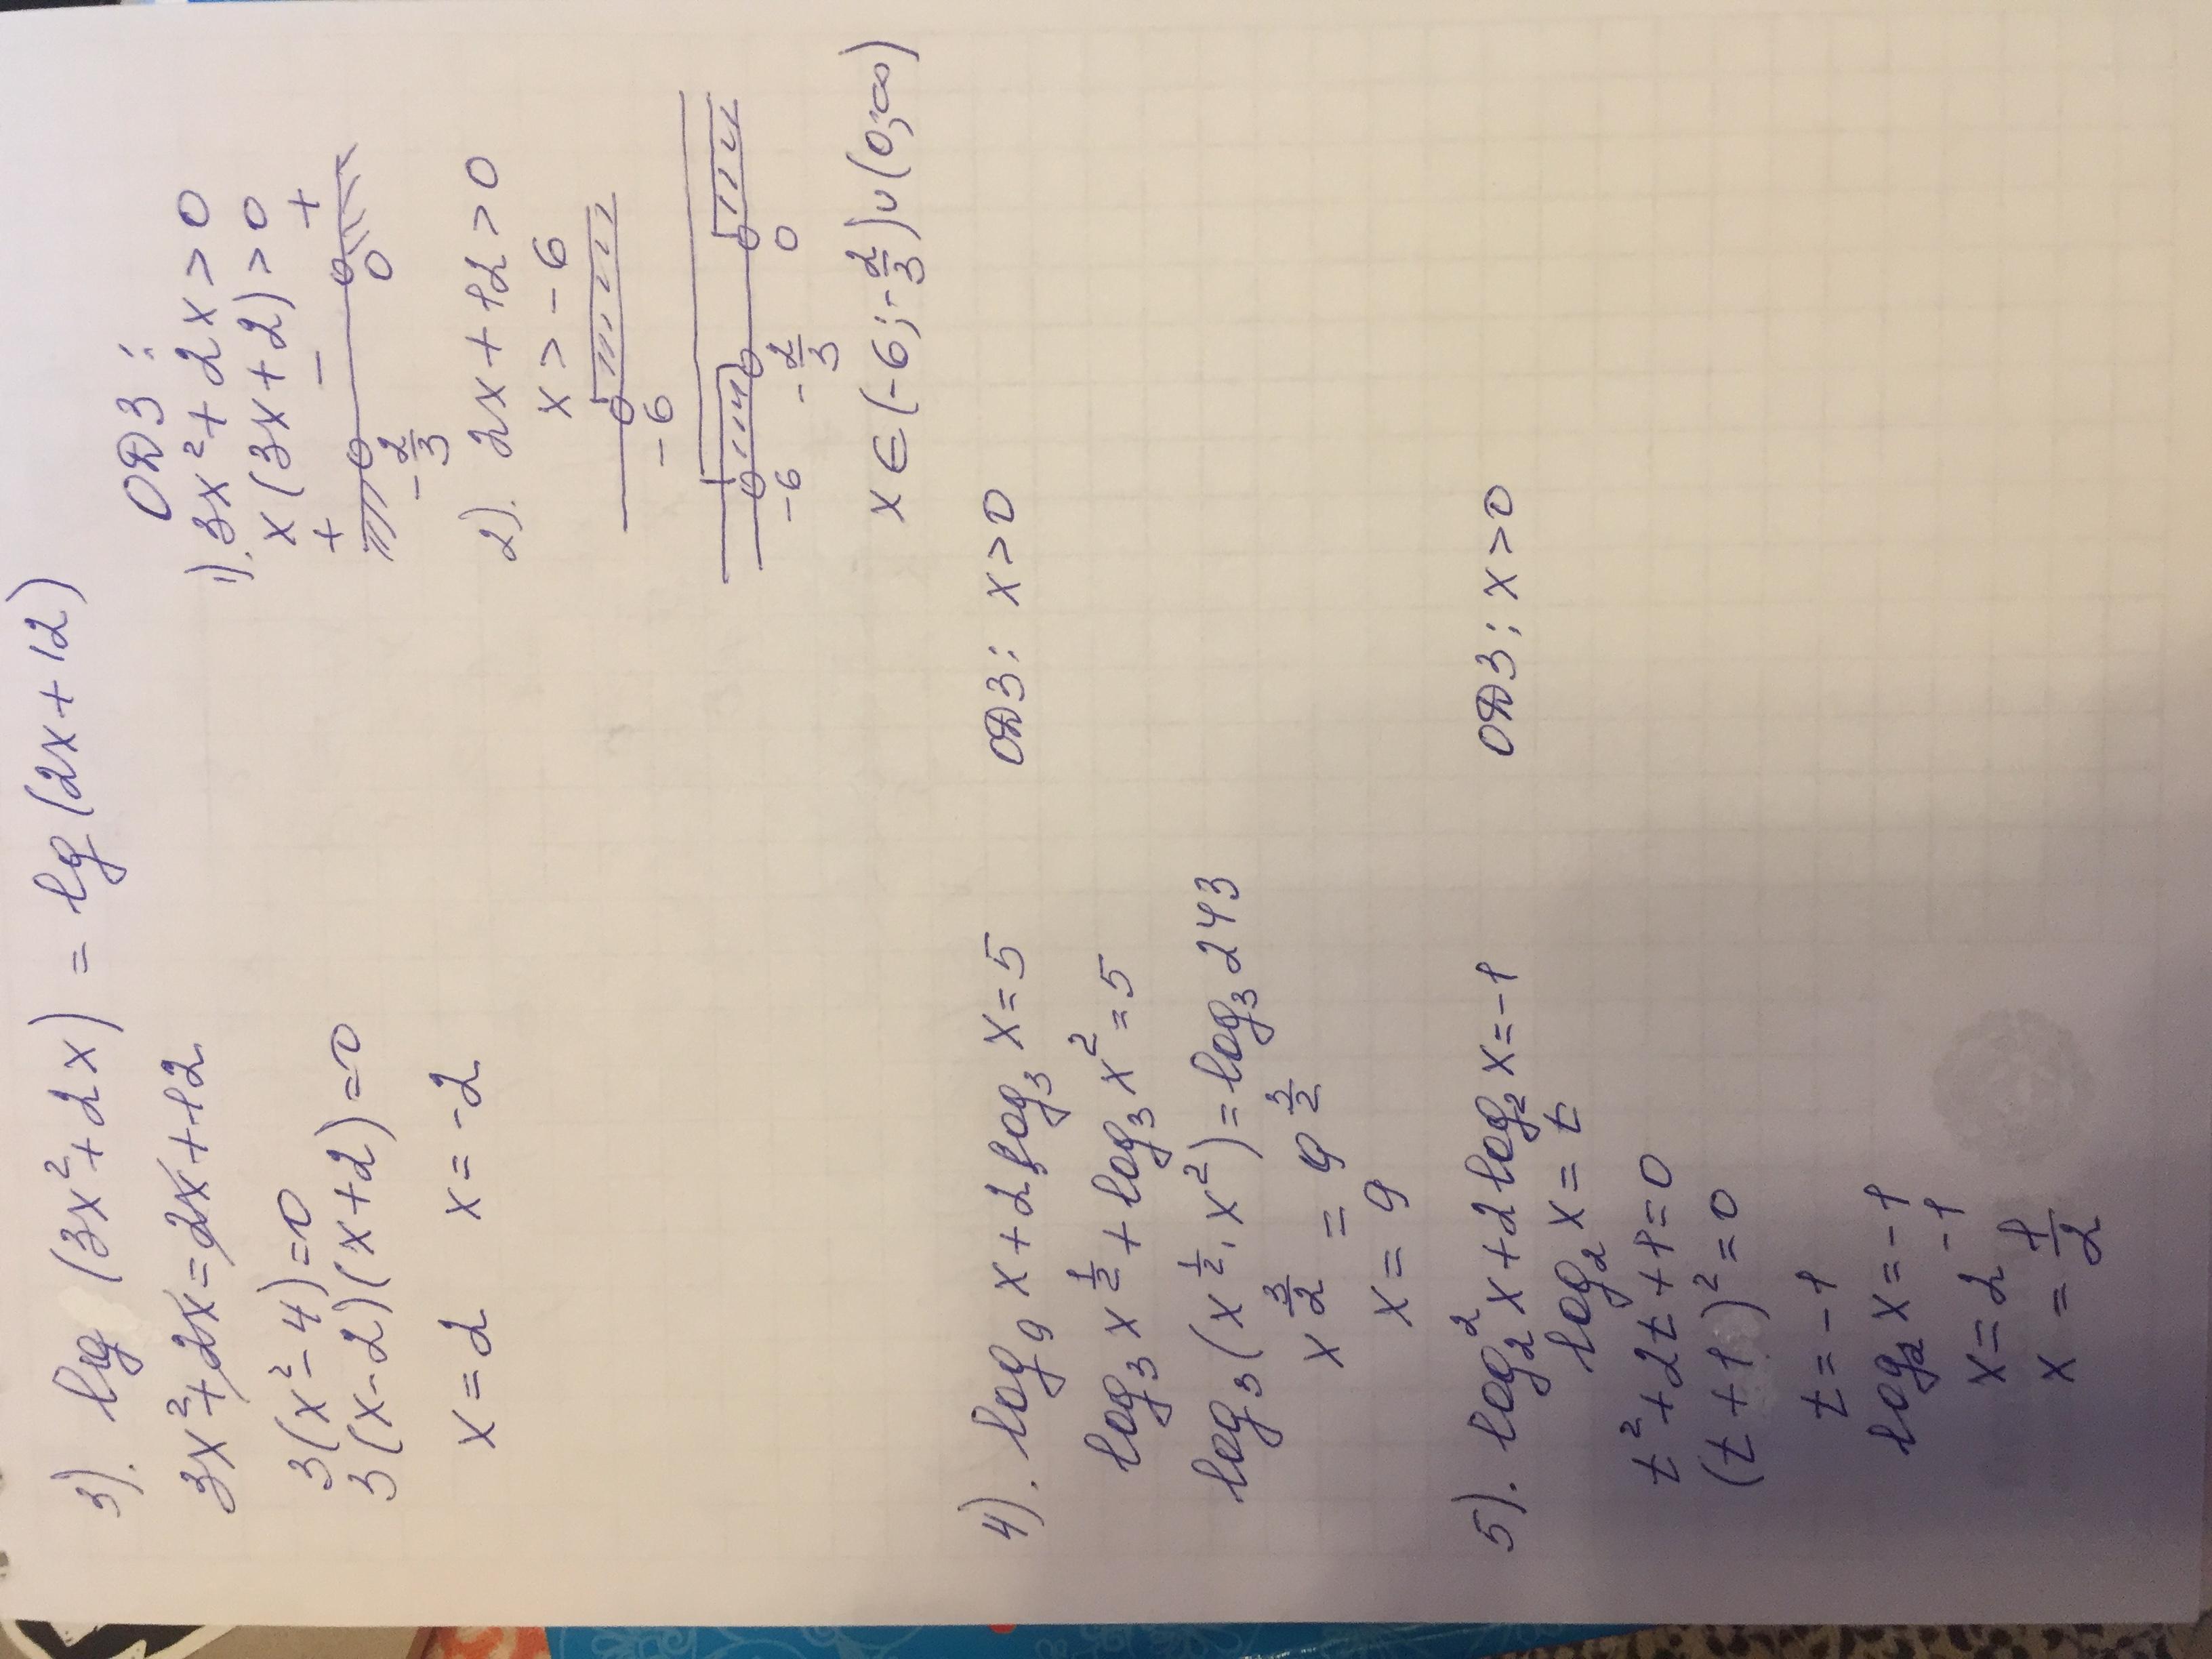 3). lg (3x²+2x) = lg (2x+12)
3x²+2x=2x+12
3(x²-4)=0
3(x-2)(x+2)=0
x=2 x=-2
ОДЗ:
1). 3x²+2x>0
x(3x+2)>0
+ - +
-2/3 0
2). 2x+12>0
x>-6
-6
-6 -2/3 0
x∈(-6;-2/3)∪(0;∞)
4). log₉ x+2log₃ x=5 ОДЗ: x>0
log₃ x^(1/2) + log₃ x² = 5
log₃ (x^(1/2) · x²) = log₃ 243
x^(3/2) = 9^(3/2)
x=9
5). log₂² x+2log₂ x=-1 ОДЗ: x>0
log₂ x=t
t²+2t+1=0
(t+1)²=0
t=-1
log₂ x=-1
x=2⁻¹
x=1/2